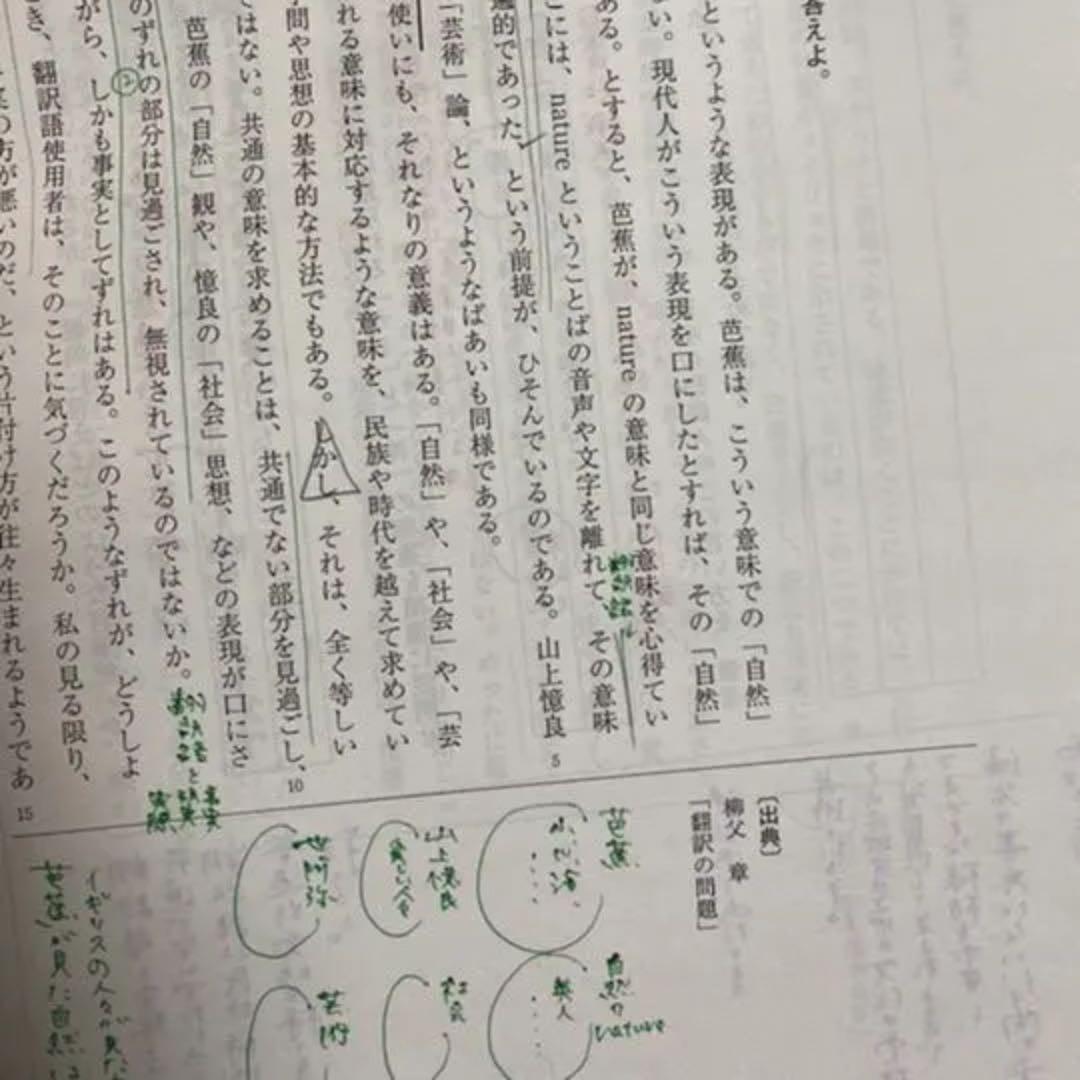 答えよ。
というような表現がある。芭蕉は、こういう意味での「自然」
い。現代人がこういう表現を口にしたとすれば、その「自然」
ある。とすると、芭蕉が、natureの意味と同じ意味を心得てい
こには、natureということばの音声や文字を離れて、その意味
遍的であった、という前提が、ひそんでいるのである。山上憶良
5
「芸術」論、というようなばあいも同様である。
使いにも、それなりの意義はある。「自然」や、「社会」や、「芸
れる意味に対応するような意味を、民族や時代を越えて求めてい
間や思想の基本的な方法でもある。しかし、それは、全く等しい
ではない。共通の意味を求めることは、共通でない部分を見過ごし、
10
芭蕉の「自然」観や、憶良の「社会」思想、などの表現が口にさ
のずれの部分は見過ごされ、無視されているのではないか。
がら、しかも事実としてずれはある。このようなずれが、どうしよ
き、翻訳語使用者は、そのことに気づくだろうか。私の見る限り、
の方が悪いのだ、という片付け方が往々生まれるようであ
15
〔出典〕
柳父 章
「翻訳の問題」
翻訳語
芭蕉
山上憶良
世阿弥
自然の
nature
英人
社会
芸術
イギリスの人々が見た
芭蕉が見た自然は